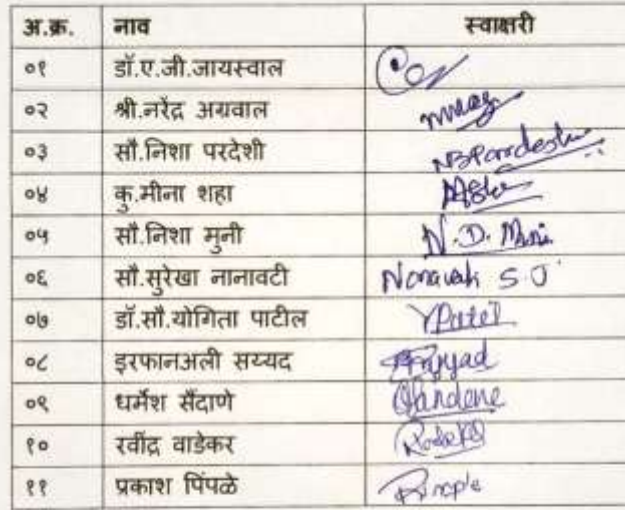 अ.क्र. नाव स्वाक्षरी
०१ डॉ.ए.जी.जायस्वाल
०२ श्री.नरेंद्र अग्रवाल
०३ सौ.निशा परदेशी NBPardeshi
०४ कु.मीना शहा
०५ सौ.निशा मुनी N.D. Muni
०६ सौ.सुरेखा नानावटी S.J
०७ डॉ.सौ.योगिता पाटील YPatil
०८ इरफानअली सय्यद
०९ धर्मेश सैंदाणे
१० रवींद्र वाडेकर
११ प्रकाश पिंपळे